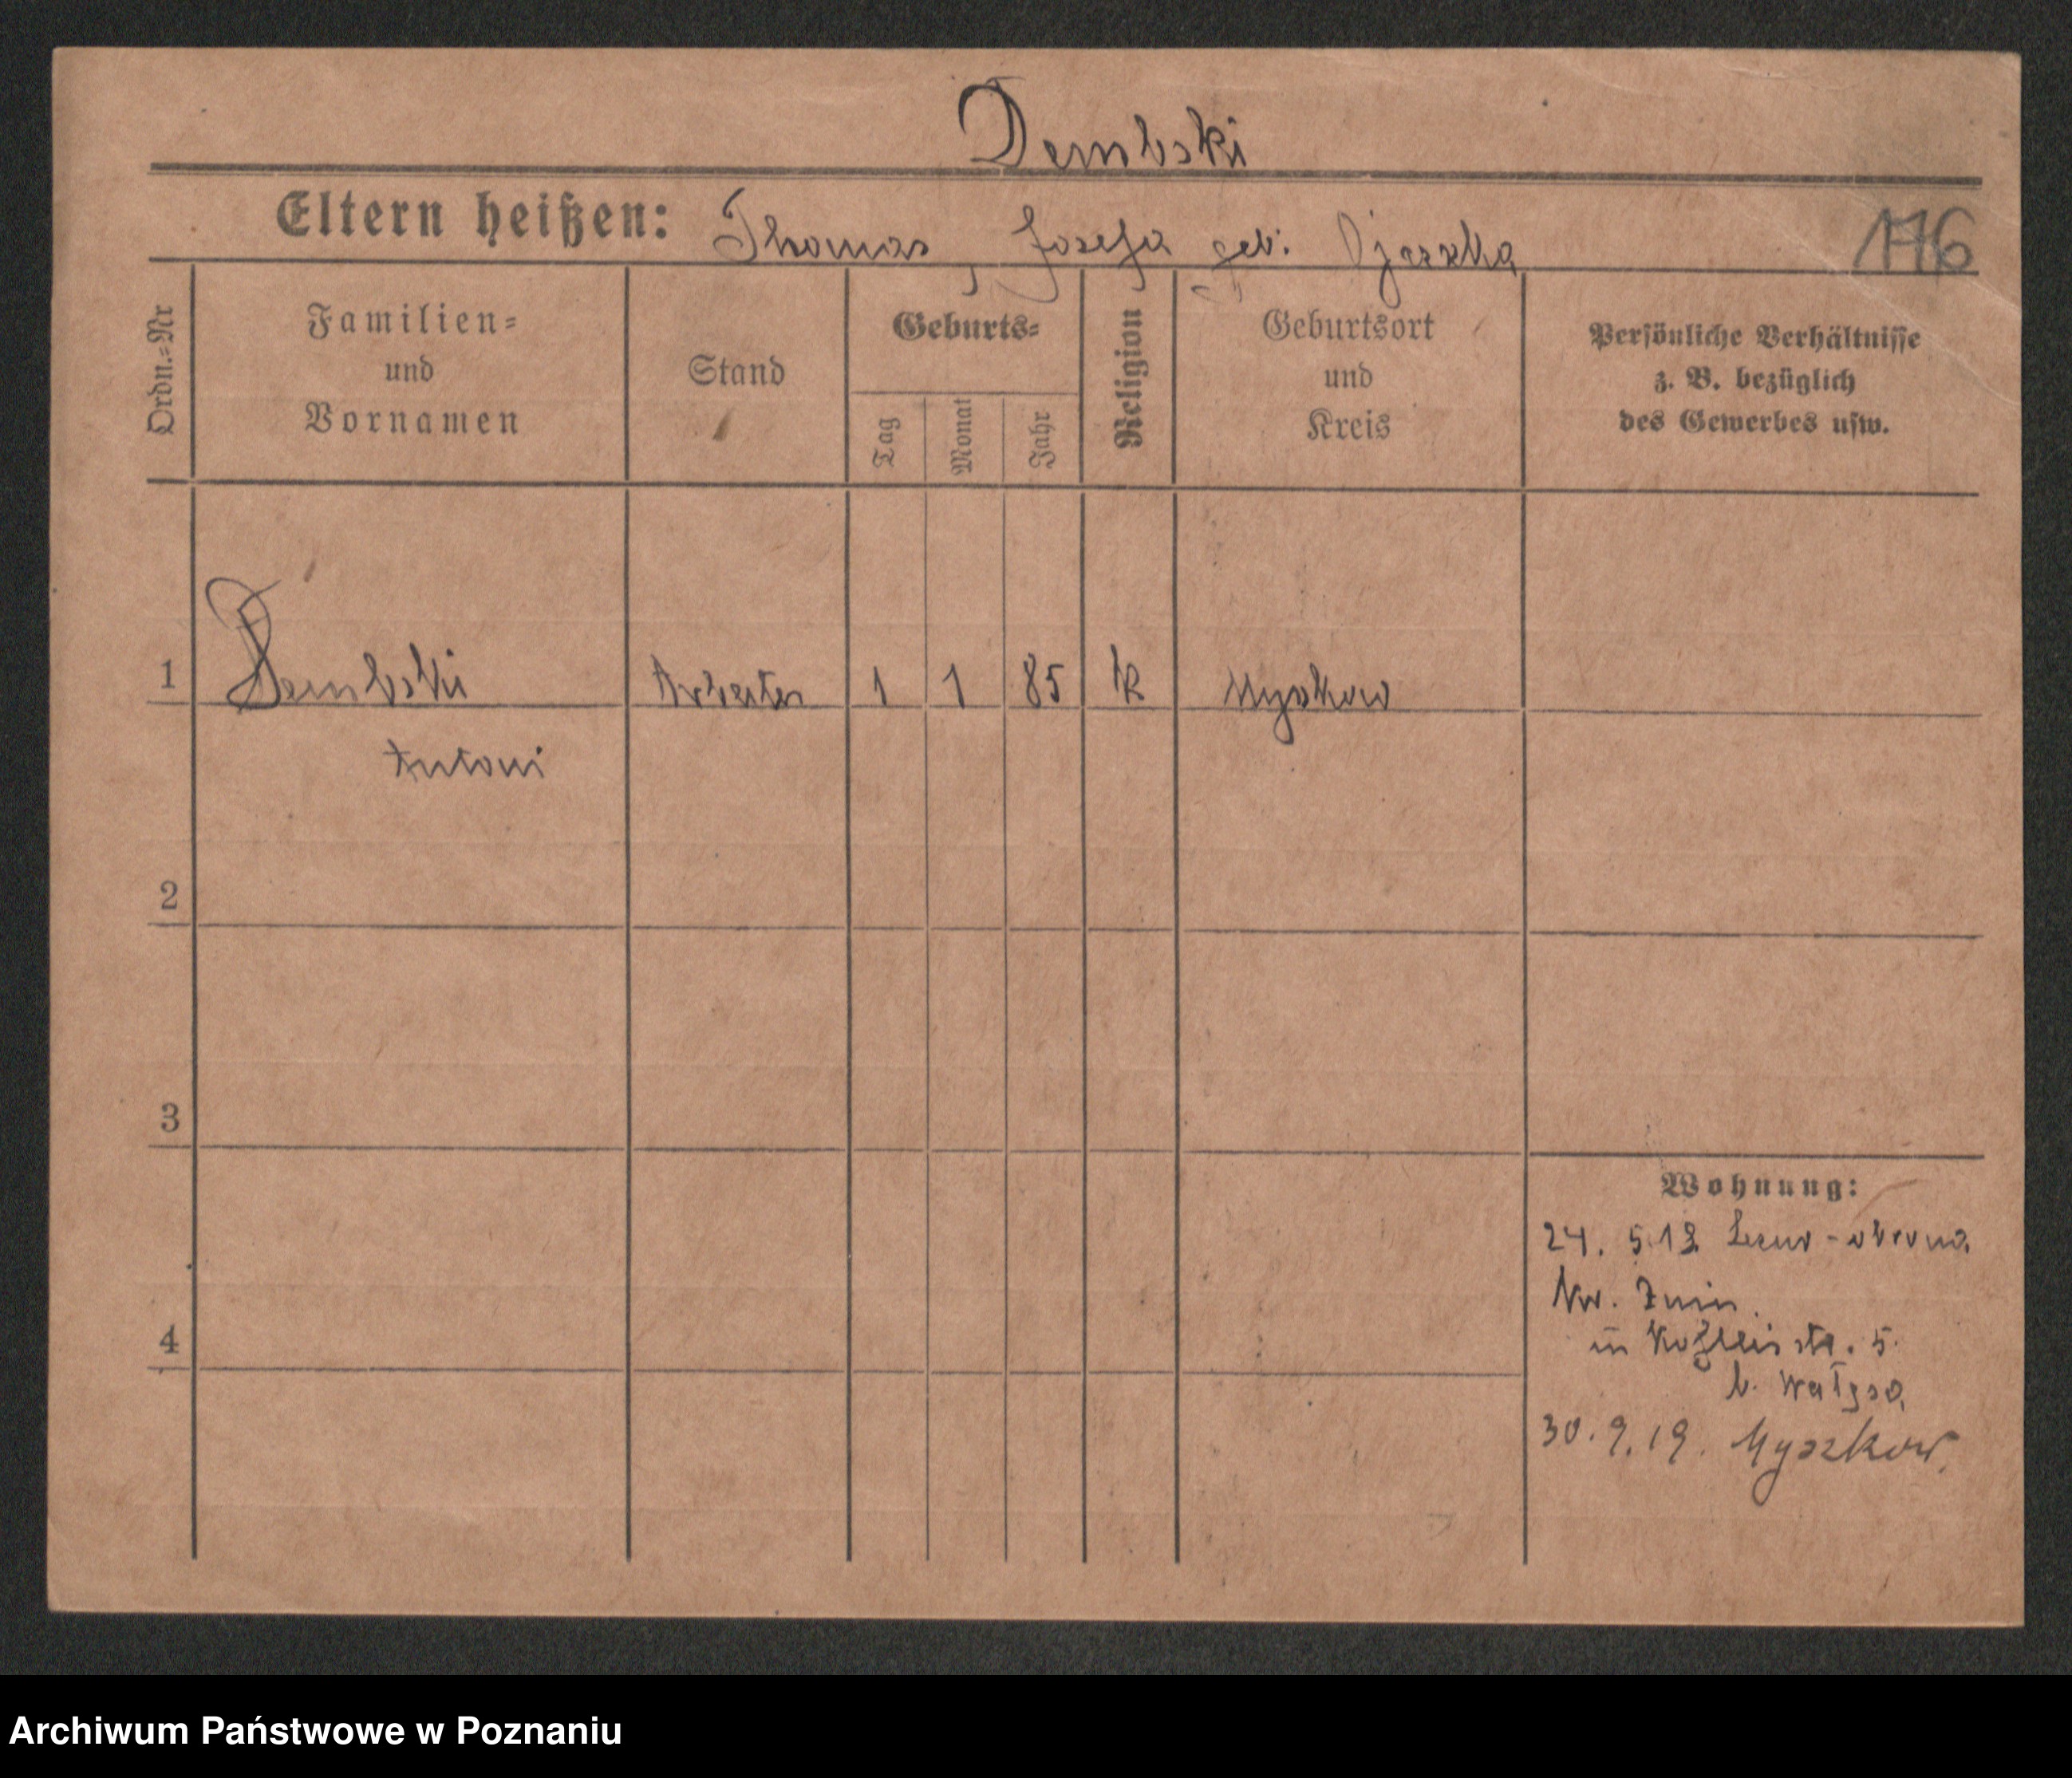 Dembski
Eltern heißen: Thomas, Josefa geb.
176
Ordn.=Nr
Familien=
und
Vornamen
Stand
Geburts=
Tag
Monat
Jahr
Religion
Geburtsort
und
Kreis
Persönliche Verhältnisse
z. B. bezüglich
des Gewerbes usw.
1 Dembski Arbeiter 1 1 85 k Myskow
Antoni
2
3
4
Wohnung:
24. 5.
Znin.
in 5.
b.
30.9.19. Myszkow.
Archiwum Państwowe w Poznaniu